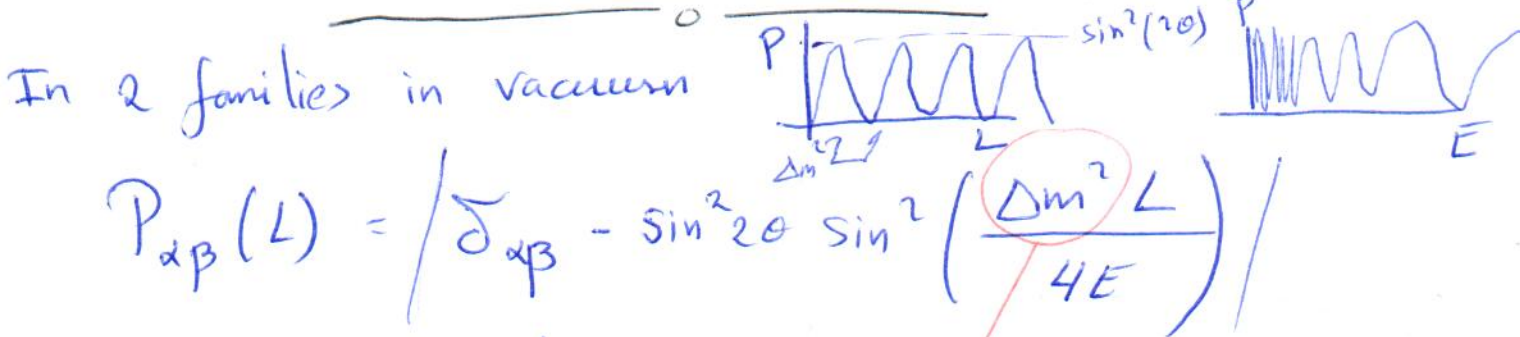 In 2 families in vacuum P sin²(2θ) P
L E
P_αβ(L) = |δ_αβ - sin²2θ sin²(Δm²L / 4E)|